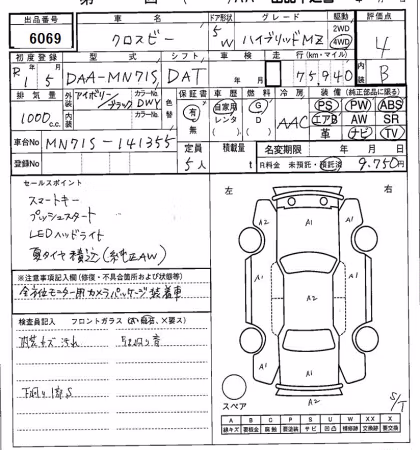 出品番号 車名 ドア形状 グレード 駆動 評価点
6069 クロスビー 5W ハイブリッドMZ 2WD 4WD 4
初度登録 型式 シフト 車検 走行(km・マイル) 内装
R1 5 DAA-MN71S DAT 年 月 75,940 B
排気量 外装 アイボリー/ブラック カラーNo. DWY 色替 保証書 車歴 燃料 冷房 装備(純正部品に限る)
1000c.c. 内装 カラーNo. 有 自家用 レンタ G D AAC PS PW ABS
エアB AW SR
革 ナビ TV
車台No. MN71S-141355 定員 積載量 名変期限 年 月 日
登録No. 5人 t R料金 未預託・預託済 9,750円
セールスポイント
スマートキー
プッシュスタート
LEDヘッドライト
夏タイヤ積込(純正AW)
※注意事項記入欄(修復・不具合箇所および状態等)
全方位モニター用カメラパッケージ装着車
検査員記入 フロントガラス
内装キズ汚れ
下回り
左 右
A2 A1
A1 A2 A1
A1
A2
スペア S/T
A B C P S U W X XX
線キズ 腐触 要塗装 サビ 凹凸 補修跡 要交換